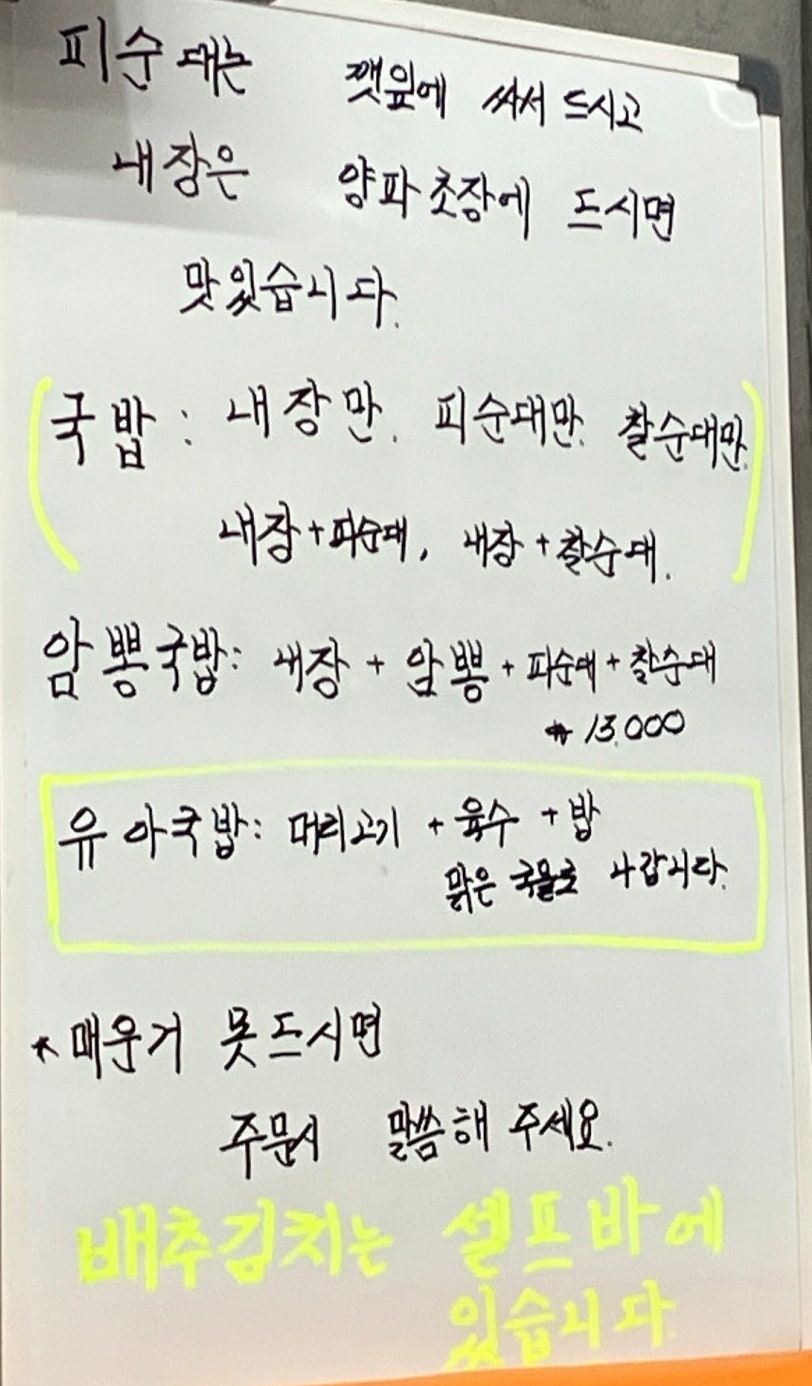 피순대는 깻잎에 싸서 드시고
내장은 양파초장에 드시면
맛있습니다.
국밥 : 내장만. 피순대만. 찰순대만.
내장+피순대, 내장+찰순대.
암뽕국밥: 내장 + 암뽕 + 피순대 + 찰순대
13,000
유아국밥: 머리고기 + 육수 + 밥
맑은 국물로 나갑니다.
*매운거 못드시면
주문시 말씀해 주세요.
배추김치는 셀프바에
있습니다.